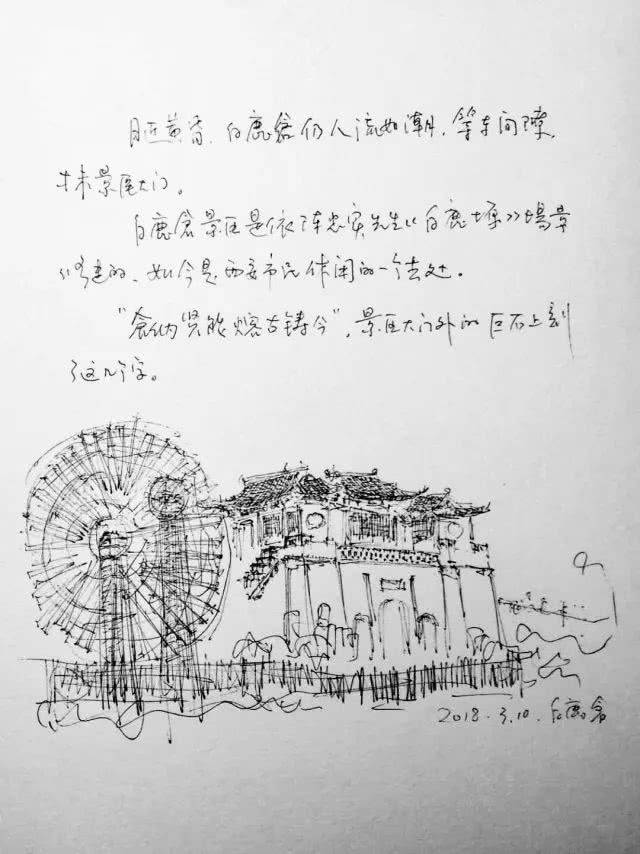 时近黄昏，白鹿仓仍人流如潮，等车间隙，
抹景区大门。
白鹿仓景区是依陈忠实先生《白鹿塬》场景
修建的，如今是西安市民休闲的一个去处。
"仓纳贤能熔古铸今"，景区大门外的巨石上刻
了这几个字。
2018.3.10.白鹿仓